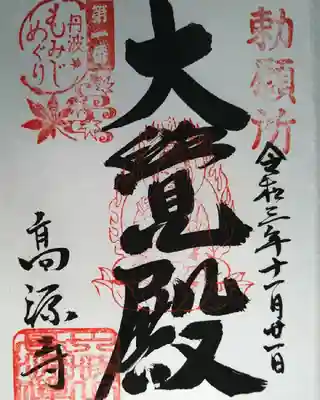 勅願所
令和三年十一月廿一日
大覚殿
第一番
丹波
もみじ
めぐり
高源寺